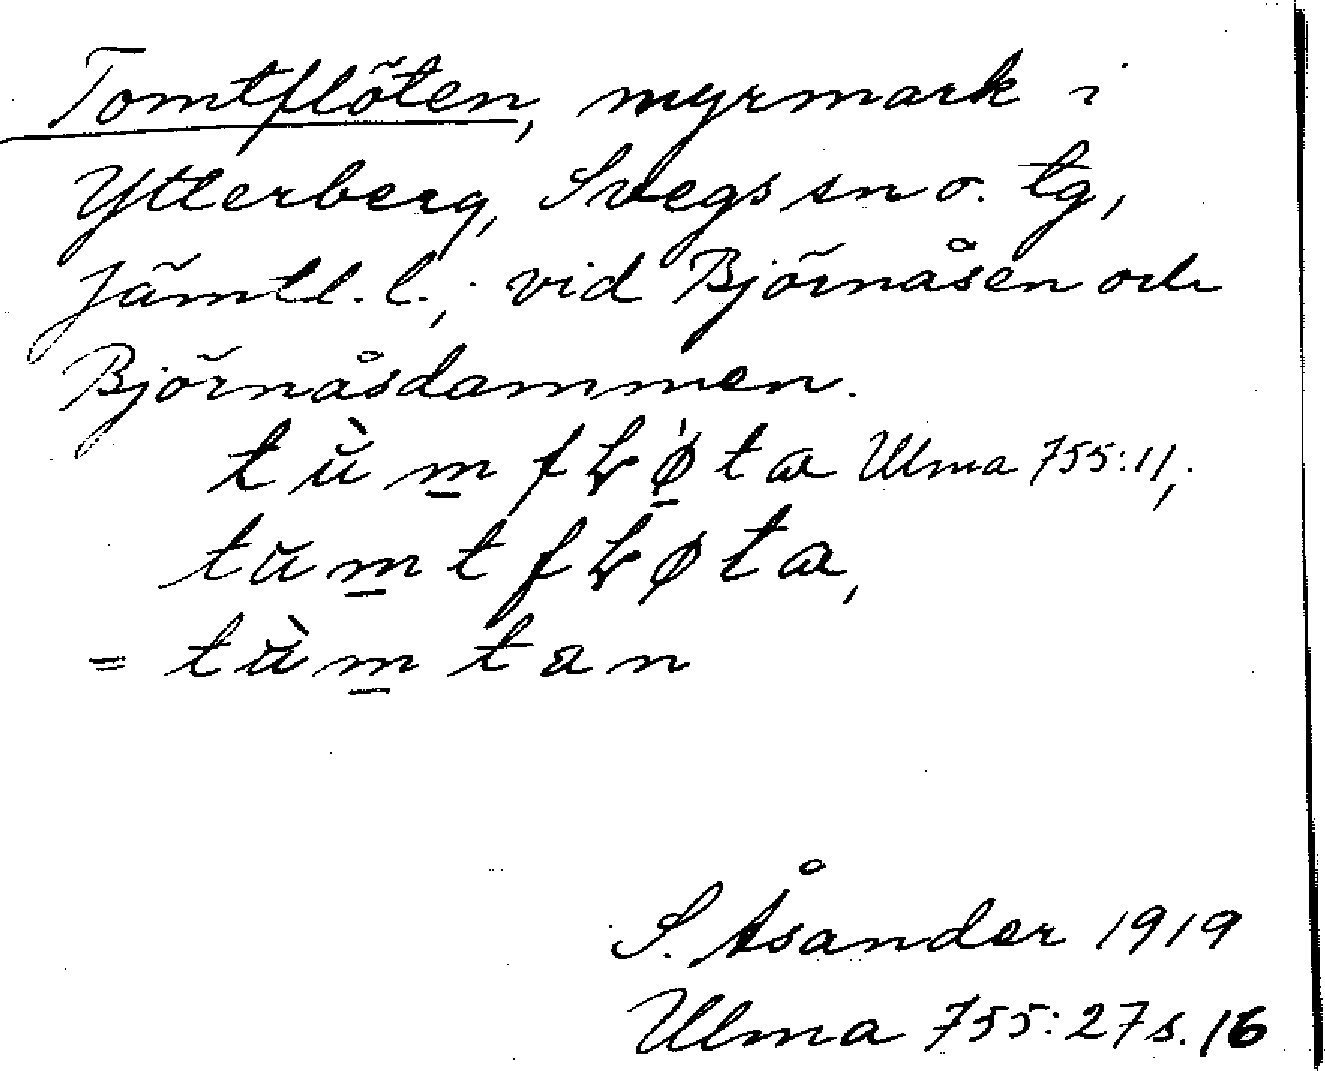 Tomtflöten, myrmark i
Ytterberg, Svegs sn o. tg,
Jämtl. l., vid Björnåsen och
Björnåsdammen.
tùm̲fɫø̲̀ta Ulma 755:11,
tum̲tfɫøta,
= tùm̲tan
S. Åsander 1919
Ulma 755:27 s. 16